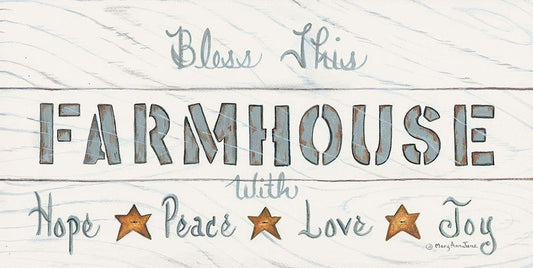 Bless This
FARMHOUSE
With
Hope Peace Love Joy
© Mary Ann June